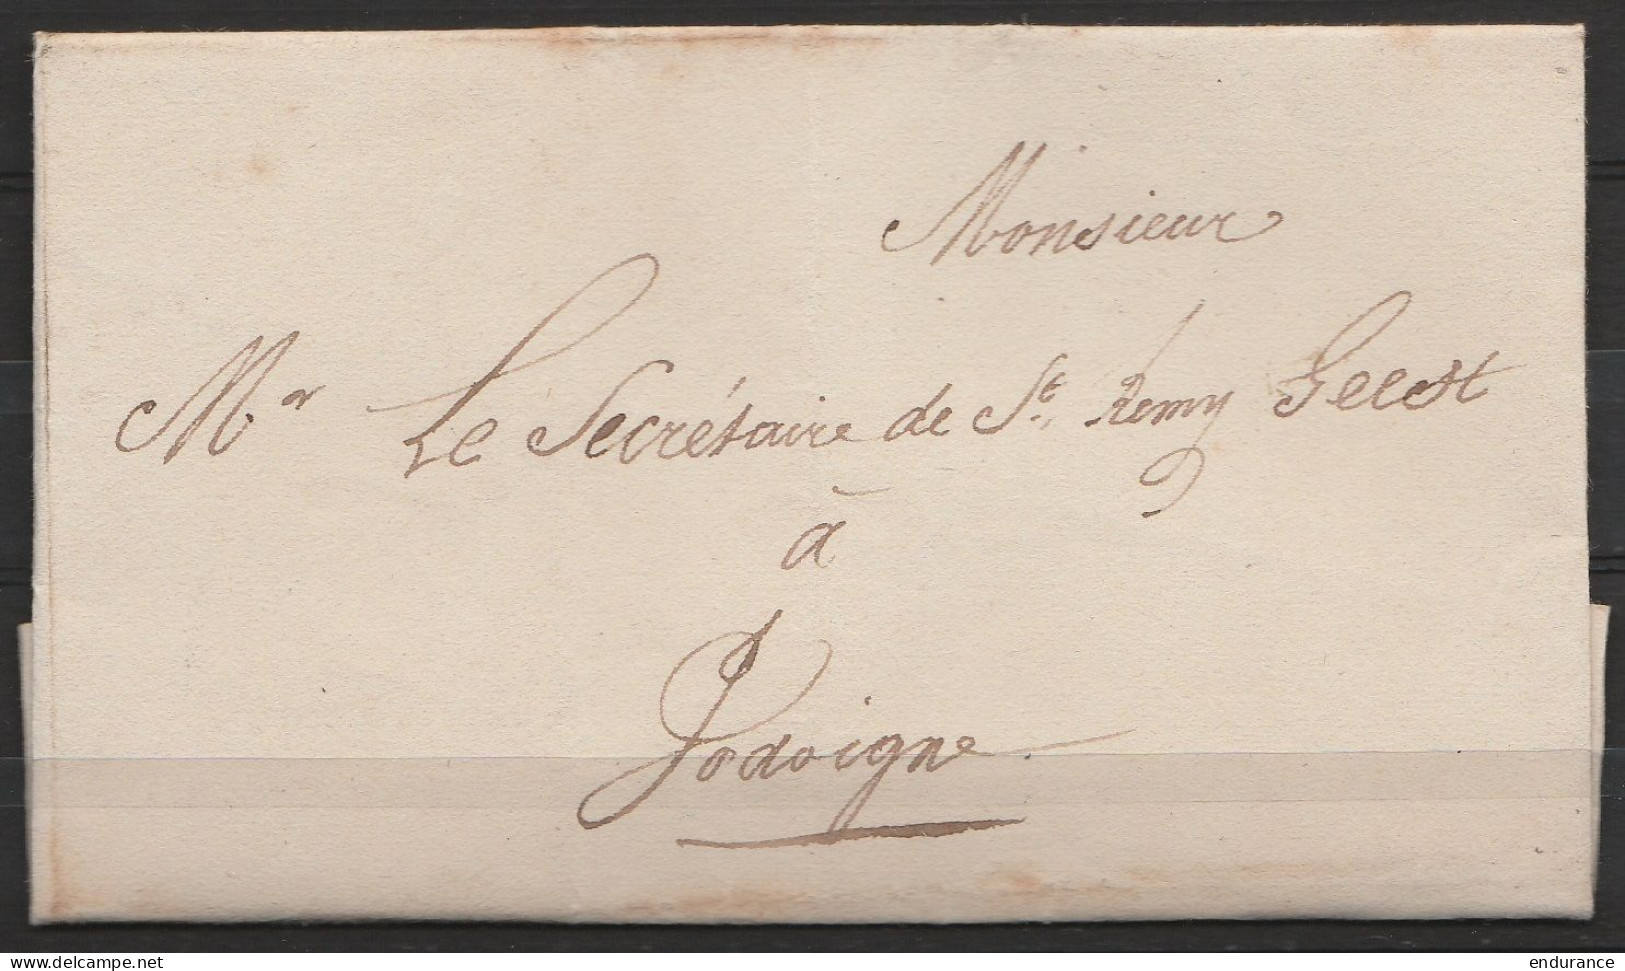 Monsieur
Mr Le Secrétaire de St. Remy Geest
à
Jodoigne
delcampe.net
endurance